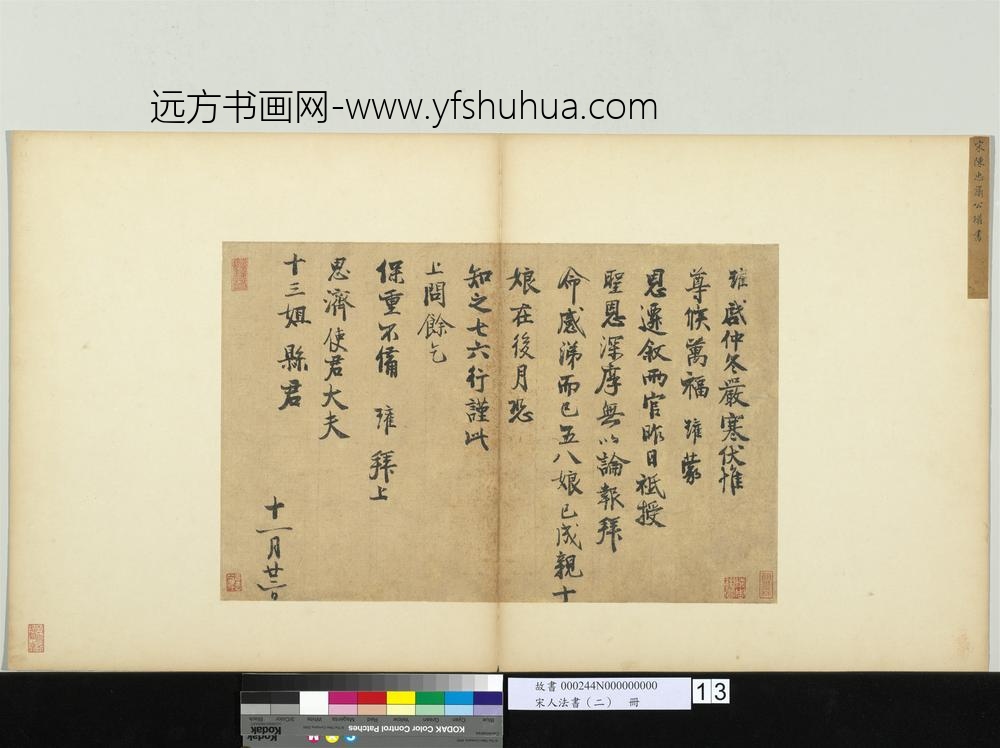 远方书画网-www.yfshuhua.com
宋陳忠肅公瓘書
瓘啟仲冬嚴寒伏惟
尊候萬福瓘蒙
恩遷敘兩官昨日祗授
聖恩深厚無以論報拜
命感涕而已五八娘已成親十
娘在後月恐
知之七六行謹此
上問餘乞
保重不備 瓘 拜上
思濟使君大夫
十三姐縣君
十一月廿二日
故書 000244N000000000
宋人法書(二) 冊
13
KODAK Color Control Patches
Blue
Cyan
Green
Yellow
Red
Magenta
White
3/Color
Black